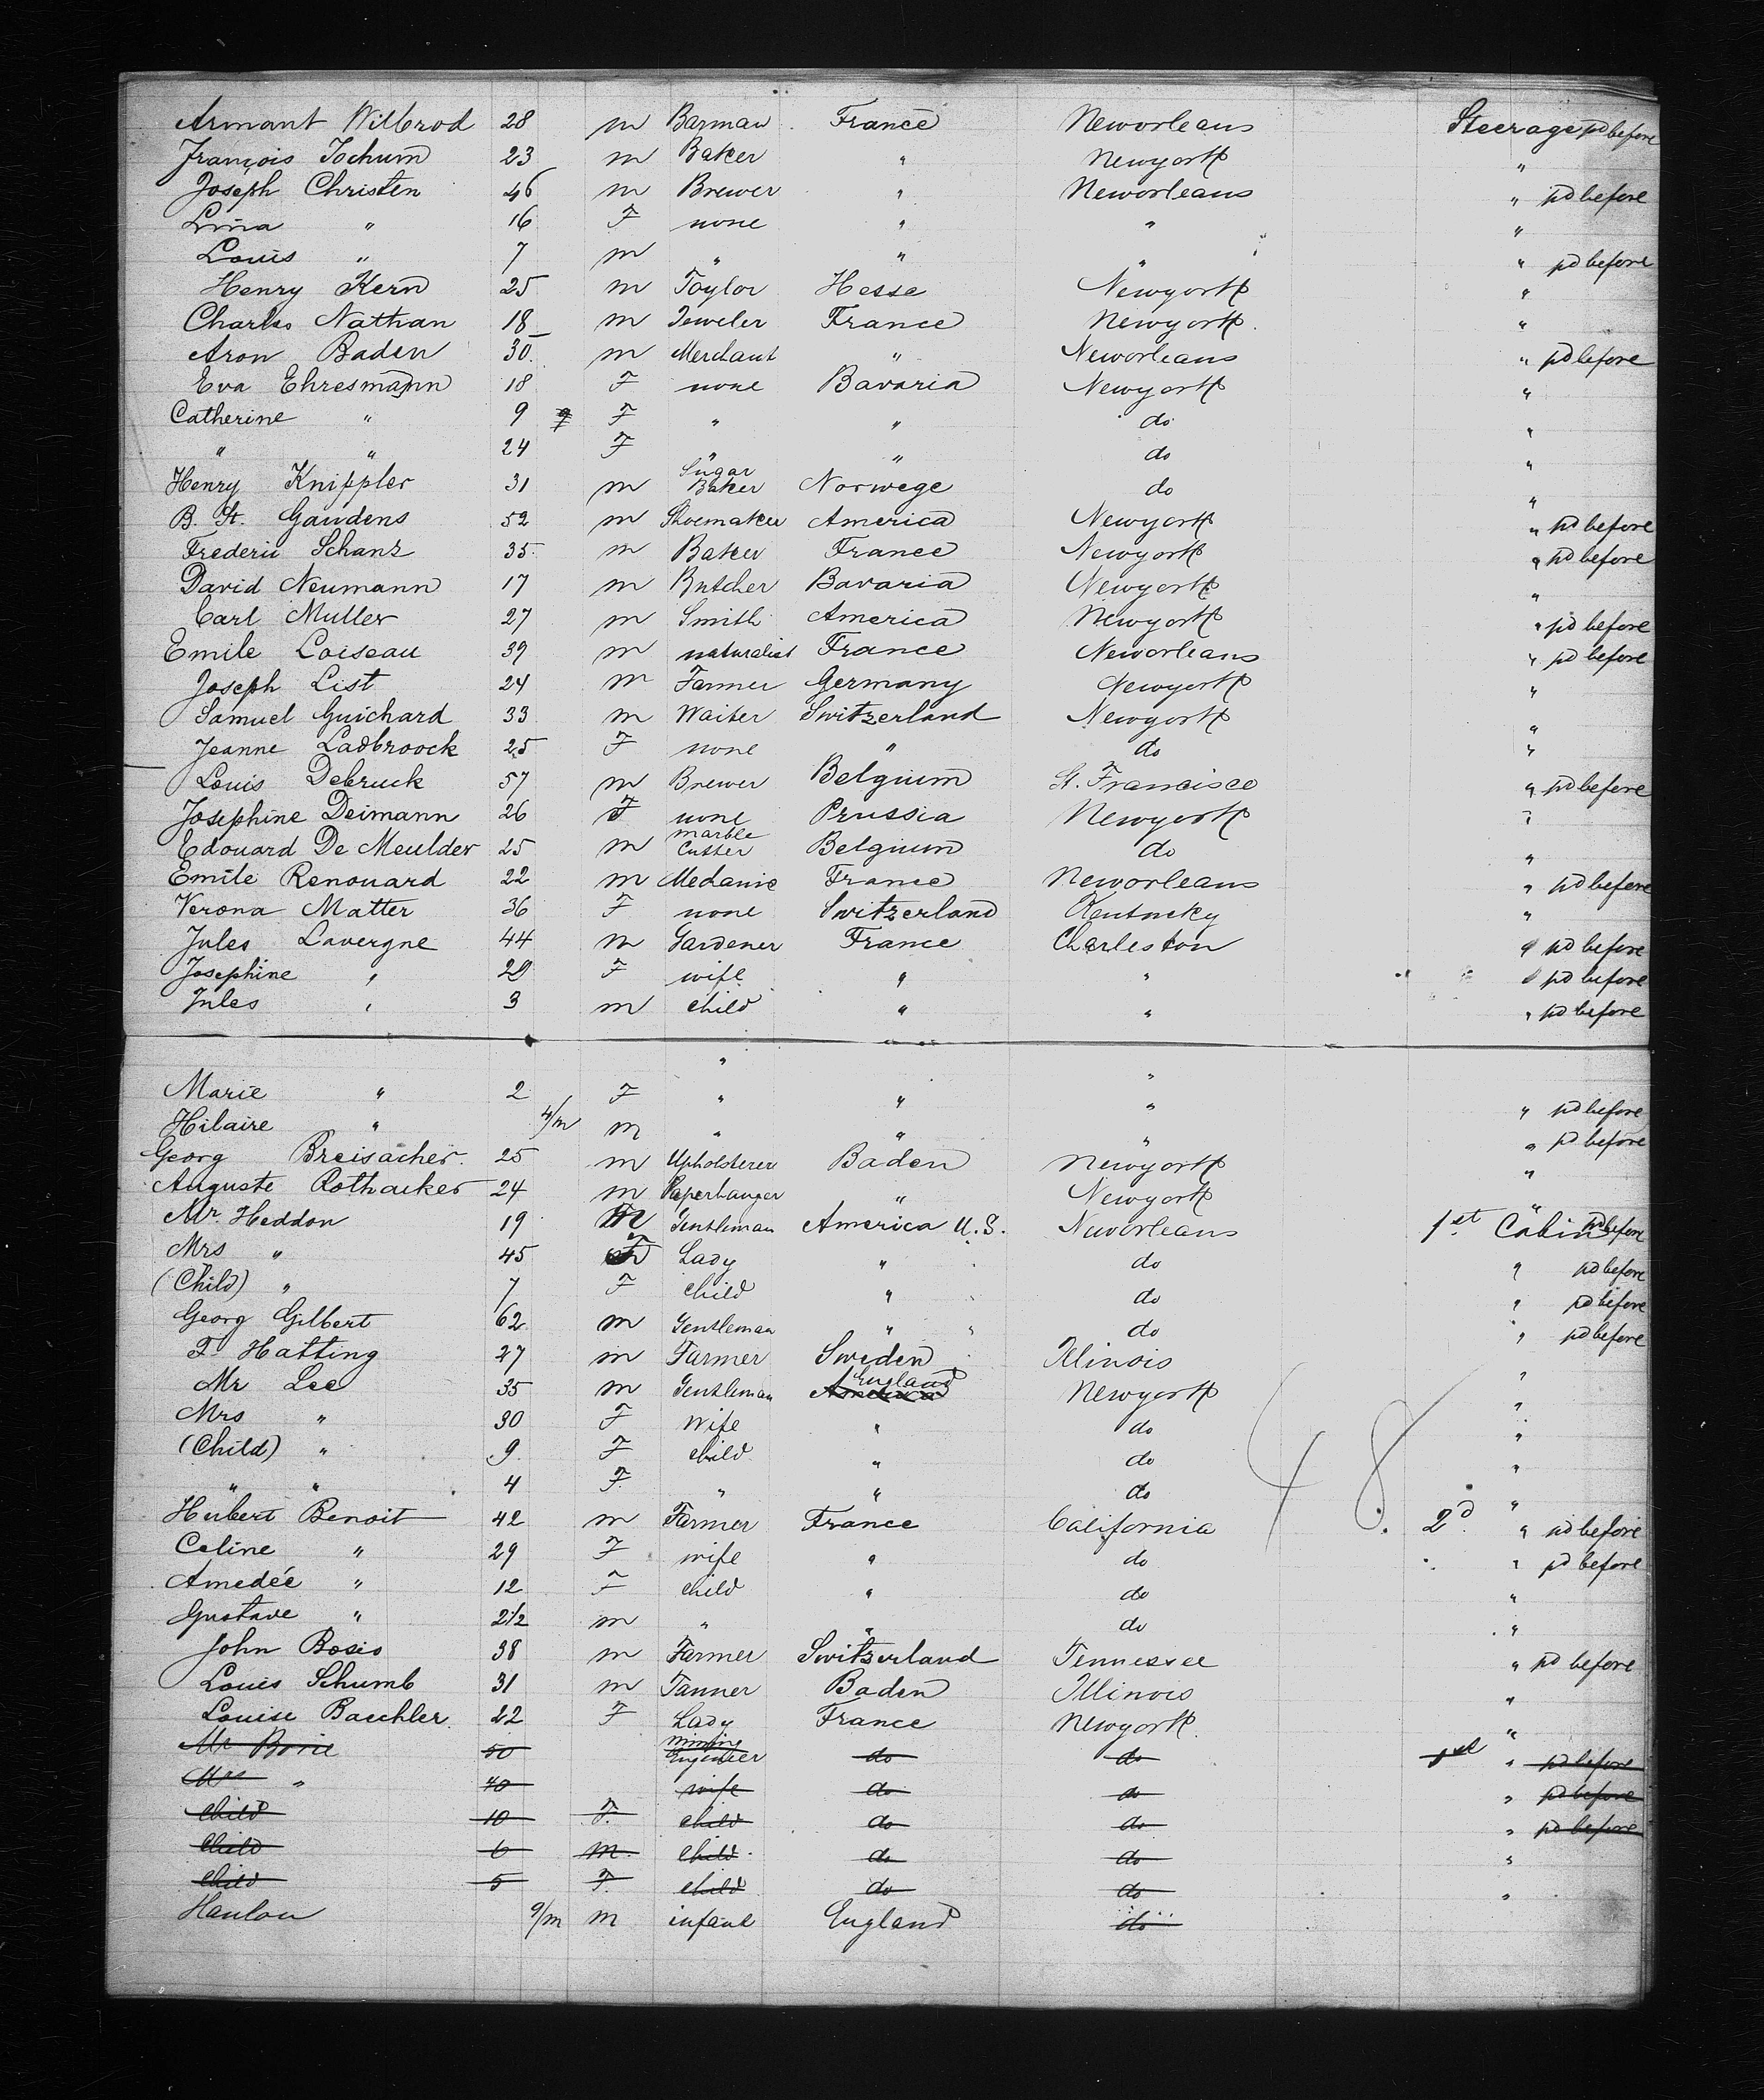 Armant Wilbrod 28 m Barman France Neworleans Steerage pd before
François Jochum 23 m Baker " Newyork "
Joseph Christen 46 m Brewer " Neworleans " pd before
Lina " 16 F none " " "
Louis " 7 m " " " " pd before
Henry Kern 25 m Taylor Hesse Newyork "
Charles Nathan 18 m Jeweler France Newyork "
Aron Baden 30 m Merchant " Neworleans " pd before
Eva Ehresmann 18 F none Bavaria Newyork "
Catherine " 9 F " " do "
" " 24 F " " do "
Henry Knippler 31 m Sugar Baker Norwege do "
B. St. Gaudens 52 m Shoemaker America Newyork " pd before
Frederic Schanz 35 m Baker France Newyork " pd before
David Neumann 17 m Butcher Bavaria Newyork "
Carl Muller 27 m Smith America Newyork " pd before
Emile Loiseau 39 m naturalist France Neworleans " pd before
Joseph List 24 m Farmer Germany Newyork "
Samuel Guichard 33 m Waiter Switzerland Newyork "
Jeanne Ladbroock 25 F none " do "
Louis Debruck 57 m Brewer Belgium St. Francisco " pd before
Josephine Deimann 26 F none Prussia Newyork "
Edouard De Meulder 25 m marble Cutter Belgium do "
Emile Renouard 22 m Mechanic France Neworleans " pd before
Verona Matter 36 F none Switzerland Kentucky "
Jules Lavergne 44 m Gardener France Charleston " pd before
Josephine " 29 F wife " " " pd before
Jules " 3 m child " " " pd before
" "
Marie " 2 F " " " " pd before
Hilaire " 4/m m " " " " pd before
Georg Breisacher 25 m Upholsterer Baden Newyork "
Auguste Rothacker 24 m Paperhanger " Newyork "
Mr. Heddon 19 m Gentleman America U.S. Neworleans 1st Cabin pd before
Mrs " 45 F Lady " do " pd before
(Child) " 7 F child " do " pd before
Georg Gilbert 62 m Gentleman " " do " pd before
F. Hatting 27 m Farmer Sweden Illinois "
Mr Lee 35 m Gentleman America England Newyork "
Mrs " 30 F Wife " do "
(Child) " 9 F child " do "
" " 4 F " " do "
48
Hubert Benoit 42 m Farmer France California 2d " pd before
Celine " 29 F wife " do " pd before
Amedée " 12 F child " do "
Gustave " 2 1/2 m " " do "
John Bosio 38 m Farmer Switzerland Tennessee " pd before
Louis Schumb 31 m Tanner Baden Illinois "
Louise Baechler 22 F Lady France Newyork "
Mr Borie 50 mining Engineer do do 1st " pd before
Mrs " 40 wife do do " pd before
Child 10 F. child do do " pd before
Child 6 m. child do do "
Child 5 F. child do do "
Hanlon 9/m m infant England do